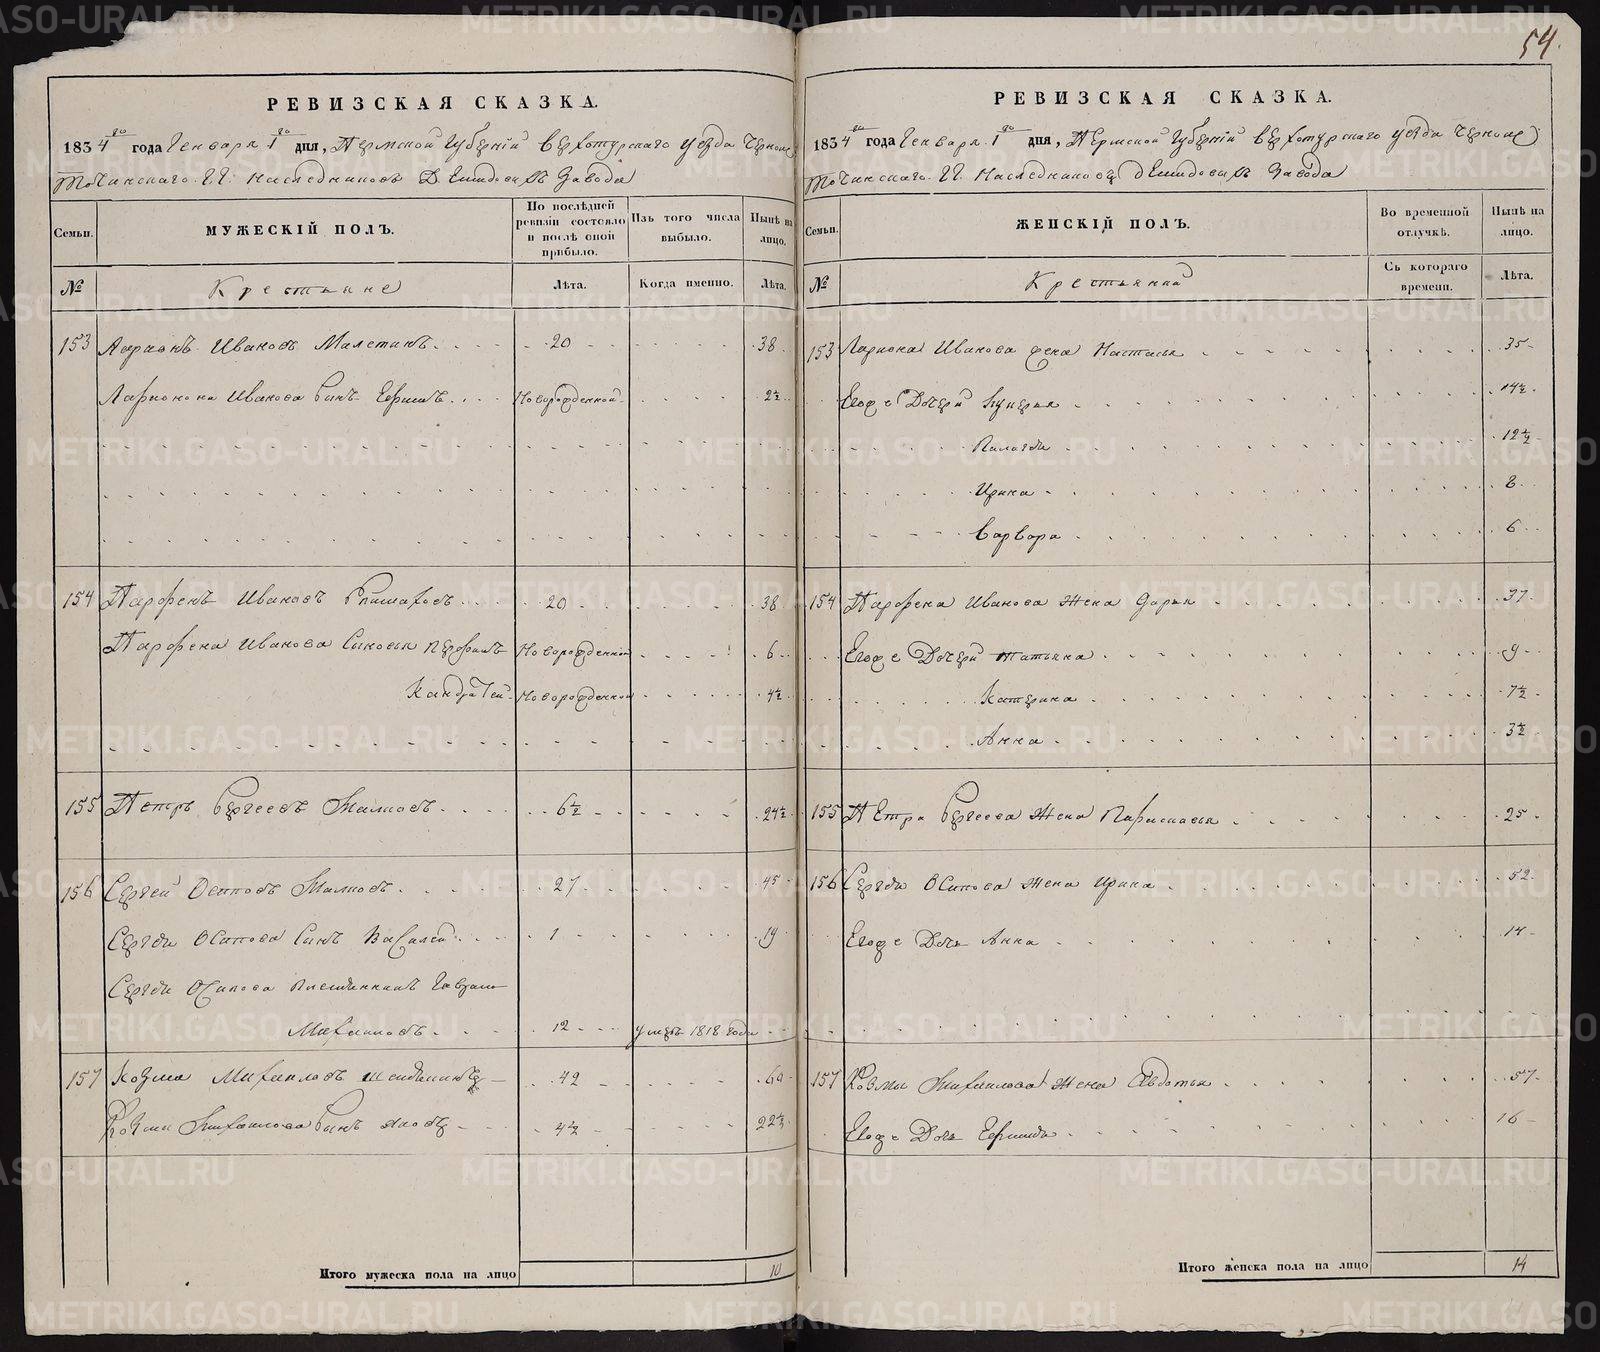 54.
РЕВИЗСКАЯ СКАЗКА.
1834го года Генваря 1го дня, Пермской Губернїй Верхотурскаго уезда Черноис
точинскаго ГГ. Наследниковъ Демидовыхъ Завода
Семьи.
МУЖЕСКІЙ ПОЛЪ.
По послѣдней ревизіи состояло и послѣ оной прибыло.
Изъ того числа выбыло.
Нынѣ на лицо.
№
Крестьяне
Лѣта.
Когда именно.
Лѣта.
153 Ларионъ Ивановъ Малетинъ 20 38
Лариона Иванова Сынъ Ефимъ Новорожденной 2½
154 Парфенъ Ивановъ 20 38
Парфена Иванова Сыновья Перфилъ Новорожденной 6
Кандратей Новорожденной 4½
155 Петръ Сергеевъ Малковъ 6½ 24½
156 Сергей Осиповъ Малковъ 27 45
Сергея Осипова Сынъ Василей 1 19
Сергея Осипова племянникъ Гаврило
Михаиловъ 12 умеръ 1818 года
157 Козма Михаиловъ 42 60
Козмы Михаилова Сынъ Яковъ 4½ 22½
Итого мужеска пола на лицо 10
РЕВИЗСКАЯ СКАЗКА.
1834го года Генваря 1го дня, Пермской Губернїй Верхотурскаго уезда Черноис
точинскаго ГГ. Наследниковъ Демидовыхъ Завода
Семьи.
ЖЕНСКІЙ ПОЛЪ.
Во временной отлучкѣ.
Нынѣ на лицо.
№
Крестьянки
Съ котораго времени.
Лѣта.
153 Лариона Иванова жена Настасья 35
Егоже Дочери Лукерья 14½
Палагея 12½
Ирина 8
Варвора 6
154 Парфена Иванова Жена Дарья 37
Егоже Дочери Татьяна 9
Катерина 7½
Анна 3½
155 Петра Сергеева Жена Парасковья 25
156 Сергея Осипова Жена Ирина 52
Егоже Дочь Анна 14
157 Козмы Михаилова Жена Авдотья 57
Егоже Дочь 16
Итого женска пола на лицо 14
METRIKI.GASO-URAL.RU